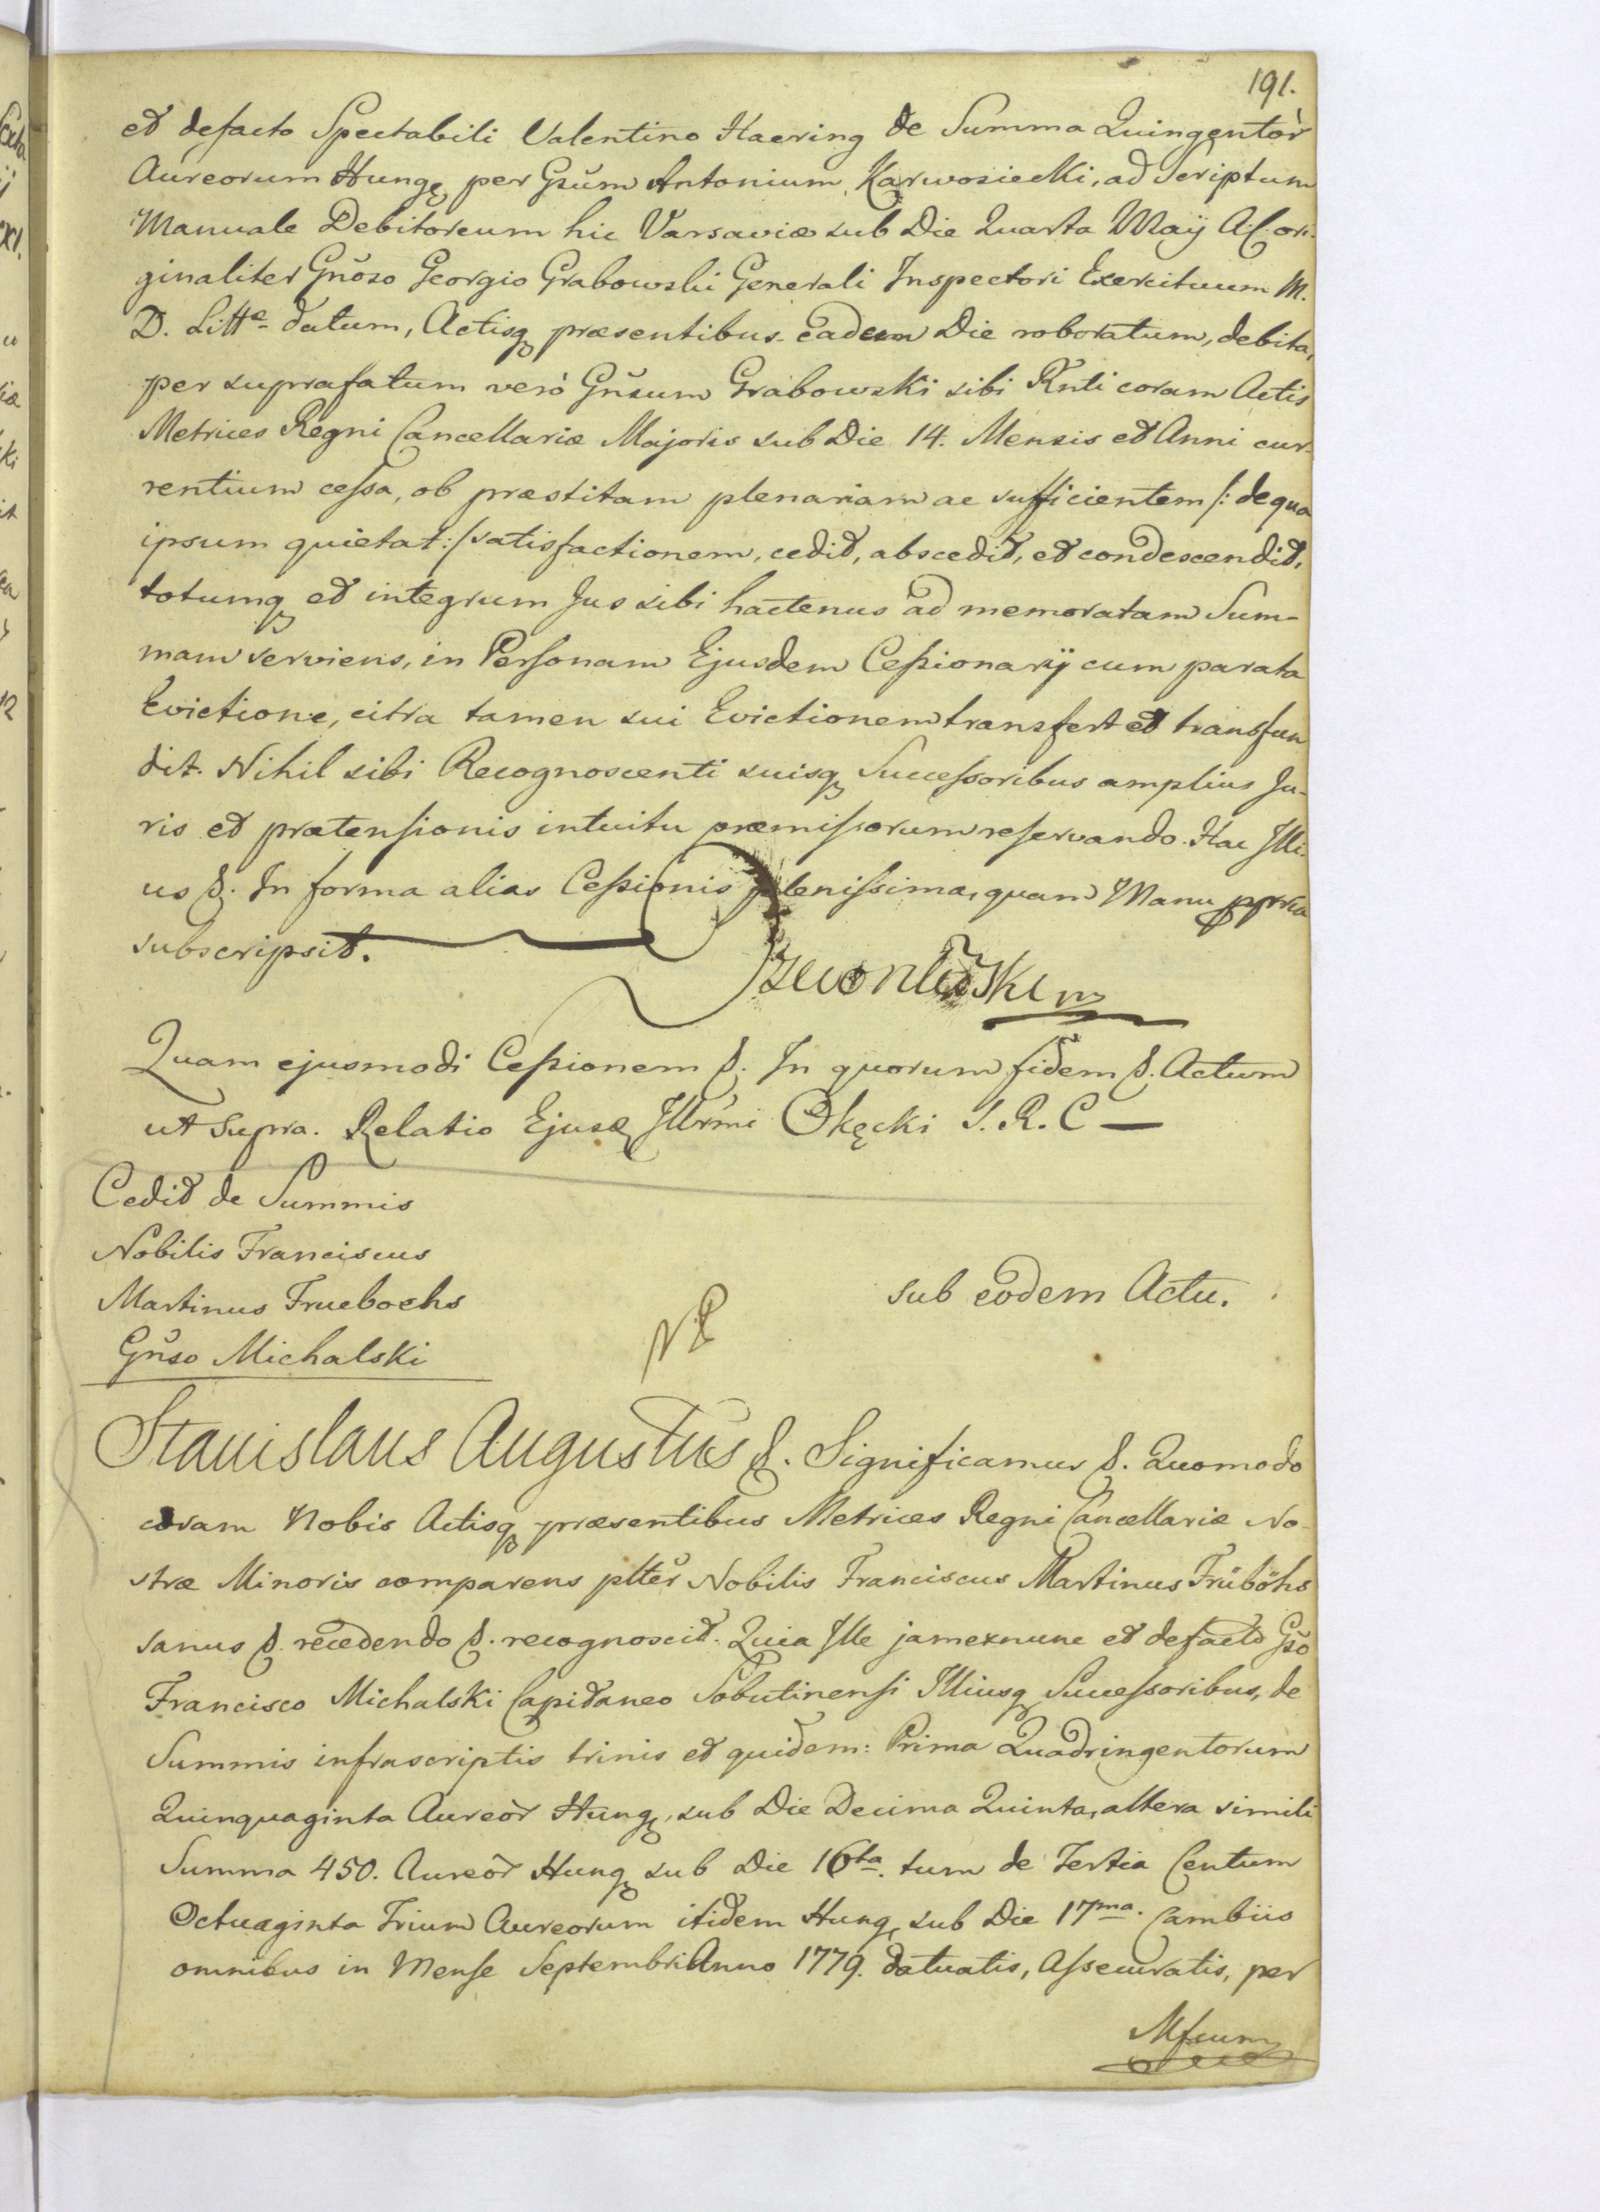 191.
et defacto Spectabili Valentino Haering de Summa Quingentor̃
Aureorum Hungq per Gsũm Antonium Karwosiecki, ad Scriptum
Manuale Debitoreum hic Varsaviæ sub Die Quarta Maÿ A. C. ori-
ginaliter Gnõso Georgio Grabowski Generali Inspectori Exercituum M.
D. Littæ datum, Actisq præsentibus eadem Die roboratum, debita,
per suprafatum verò Gñsum Grabowski sibi Rñti coram Actis
Metrices Regni Cancellariæ Majoris sub Die 14. Mensis et Anni cur-
rentium cessa, ob præstitam plenariam ac sufficientem /: de qua
ipsum quietat :/ satisfactionem, cedit, abscedit, et condescendit,
totumq et integrum Jus sibi hactenus ad memoratam Sum-
mam serviens, in Personam Ejusdem Cessionarÿ cum parata
Evictione, citra tamen sui Evictionem transfert et transfun
dit. Nihil sibi Recognoscenti suisq Successoribus amplius Ju-
ris et prætensionis intuitu præmissorum reservando. Hac Illi-
us &. In forma alias Cessionis plenissima, quam Manu ppria
subscripsit.
Quam ejusmodi Cessionem &. In quorum fidem &. Actum
ut supra. Relatio Ejusq Illrm̃i Okęcki S. R. C —
Cedit de Summis
Nobilis Franciscus
Martinus Frueboehs
Gñso Michalski
sub eodem Actu.
Stanislaus Augustus &. Significamus &. Quomodo
coram Nobis Actisq præsentibus Metrices Regni Cancellariæ No-
stræ Minoris comparens pltter̃ Nobilis Franciscus Martinus Früböhs
sanus &. recedendo &. recognoscit. Quia Ille jamexnunc et defacto Gsõ
Francisco Michalski Capitaneo Sobutinensi Illiusq Successoribus, de
Summis infrascriptis trinis et quidem: Prima Quadringentorum
Quinquaginta Aureor̃ Hungq, sub Die Decima Quinta, altera simili
Summa 450. Aureor̃ Hungq sub Die 16ta. tum de Tertia Centum
Octuaginta Trium Aureorum itidem Hungq sub Die 17ma. Cambiis
omnibus in Mense Septembri Anno 1779. datuatis, Assecuratis, per